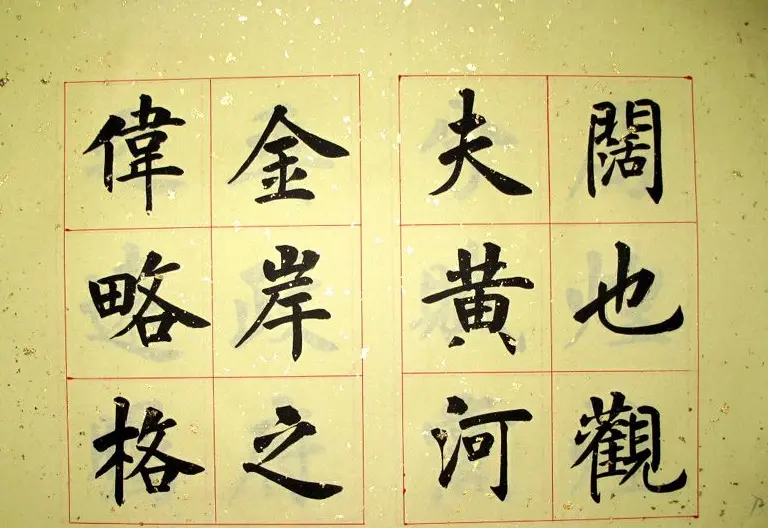 闊也觀
夫黄河
金岸之
偉略格